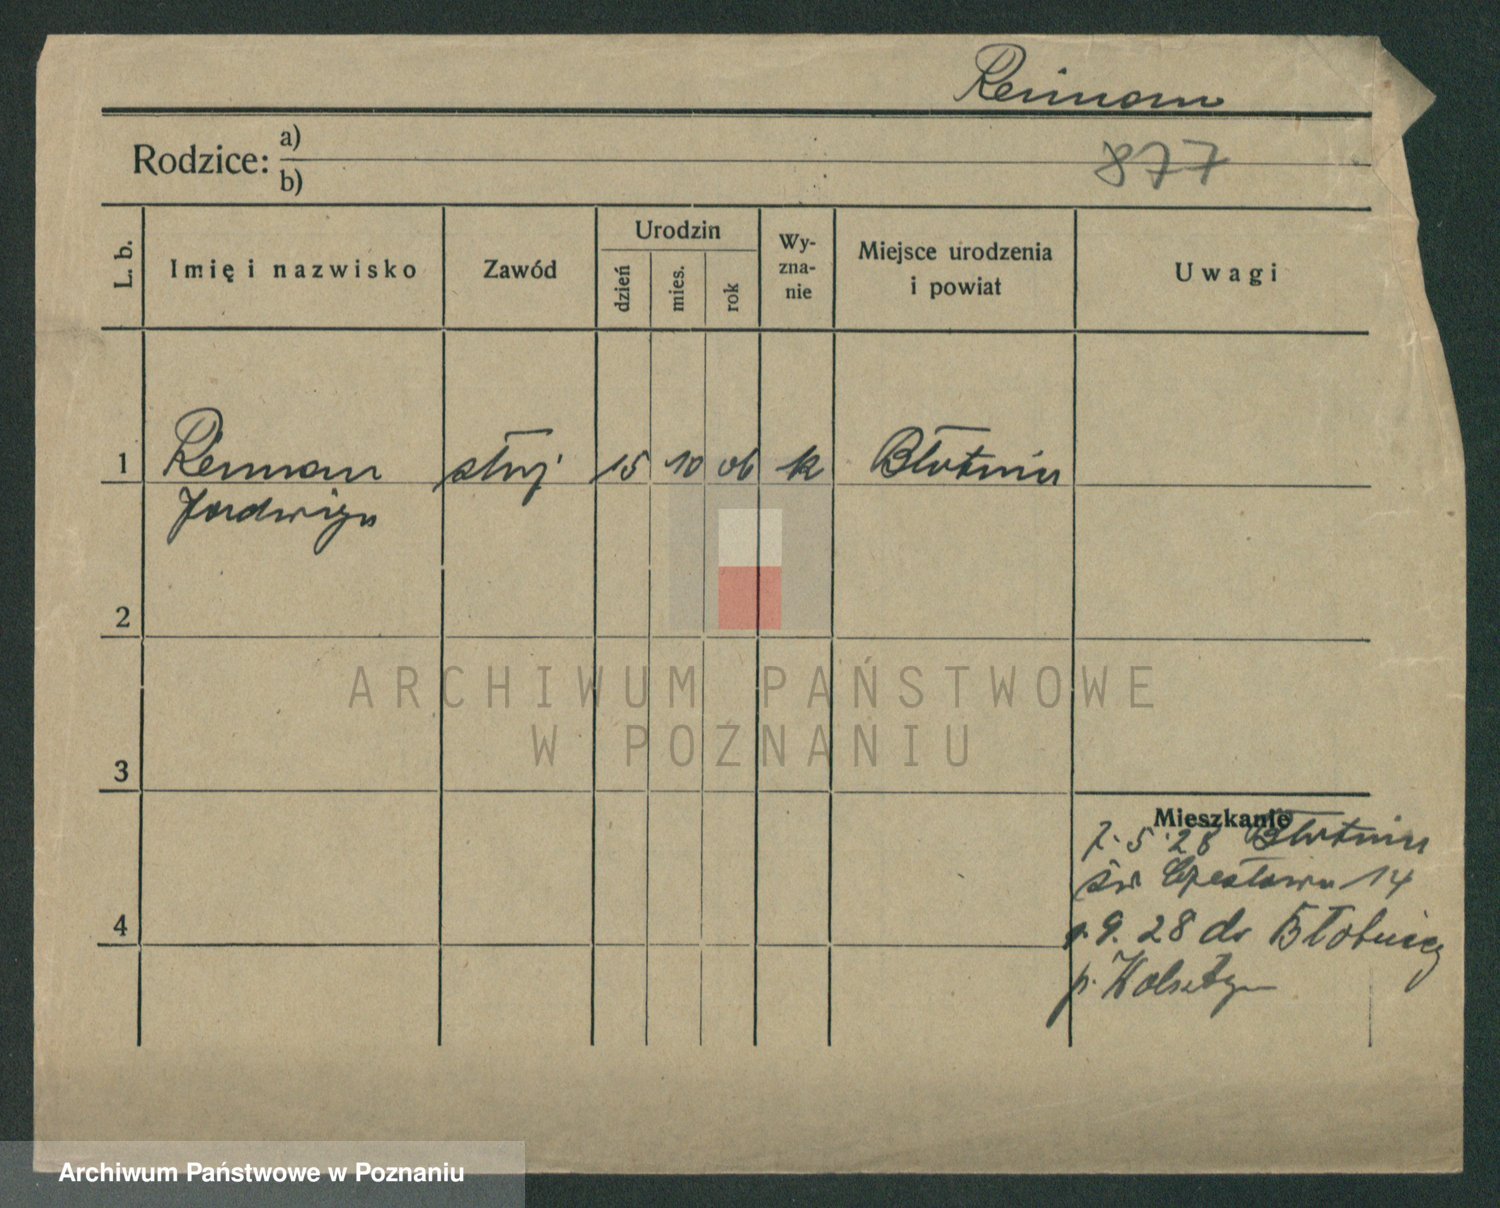 Reiman
Rodzice: a)
b)
877
L. b.
Imię i nazwisko
Zawód
Urodzin
dzień
mies.
rok
Wy-
zna-
nie
Miejsce urodzenia
i powiat
Uwagi
1
Reiman
Jadwiga
służ
15
10
06
k
Błotnica
2
3
4
Mieszkanie
7.5.28 Błotnica
św Czesława 14
1.9.28 do Błotnicy
p. Wolsztyn
ARCHIWUM PAŃSTWOWE
W POZNANIU
Archiwum Państwowe w Poznaniu